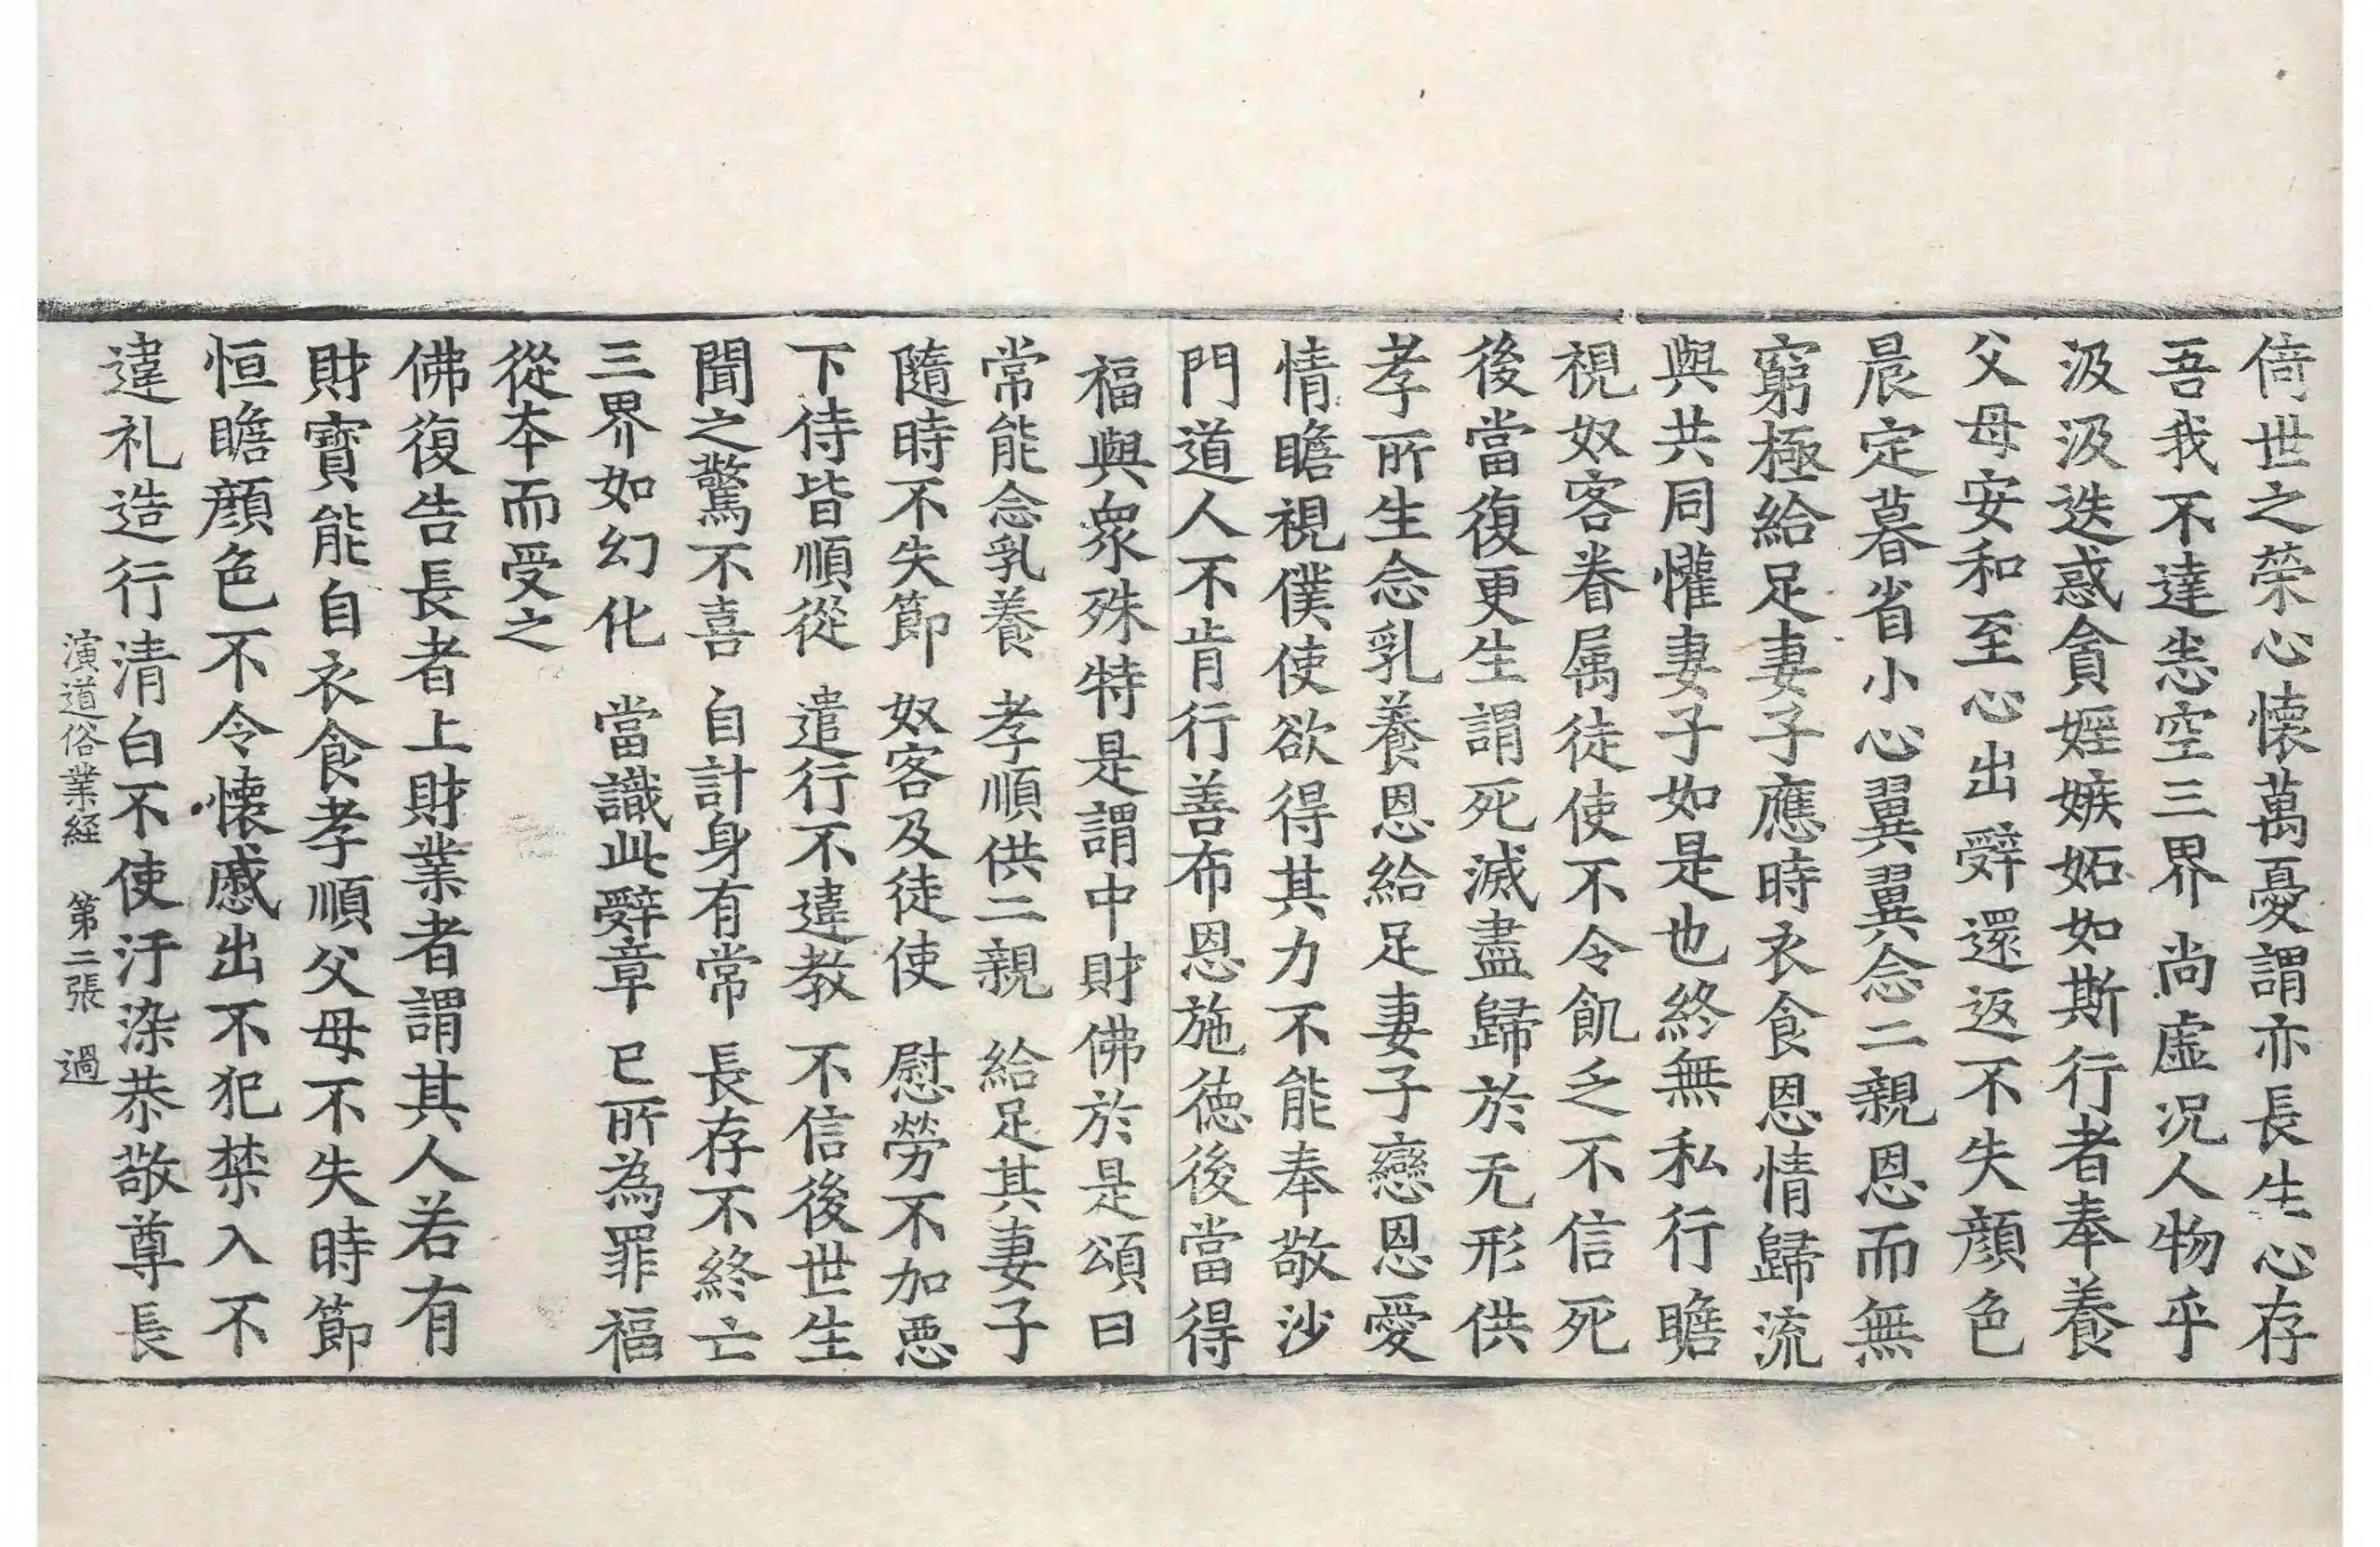 倚世之榮心懷萬憂謂亦長生心存
吾我不達恚空三界尚虛况人物乎
汲汲迭惑貪婬嫉妬如斯行者奉養
父母安和至心出辤還返不失顔色
晨定暮省小心翼翼念二親恩而無
窮極給足妻子應時衣食恩情歸流
與共同懽妻子如是也終無私行瞻
視奴客眷属徒使不令飢乏不信死
後當復更生謂死滅盡歸於无形供
孝所生念乳養恩給足妻子戀恩愛
情瞻視僕使欲得其力不能奉敬沙
門道人不肯行善布恩施德後當得
福與衆殊特是謂中財佛於是頌曰
常能念乳養 孝順供二親 給足其妻子
隨時不失節 奴客及徒使 慰勞不加惡
下侍皆順從 遣行不違教 不信後世生
聞之驚不喜 自計身有常 長存不終亡
三界如幻化 當識此辤章 已所為罪福
從本而受之
佛復告長者上財業者謂其人若有
財寳能自衣食孝順父母不失時節
恒瞻顔色不令懷慼出不犯禁入不
違礼造行清白不使汙染恭敬尊長
演道俗業経 第二張 過